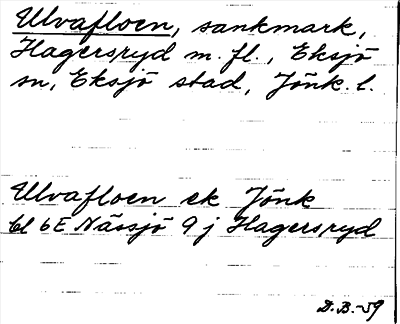 Ulvafloen, sankmark,
Hagersryd m. fl., Eksjö
sn, Eksjö stad, Jönk. l.
Ulvafloen ek Jönk
bl 6E Nässjö 9 j Hagersryd
D.B.-59